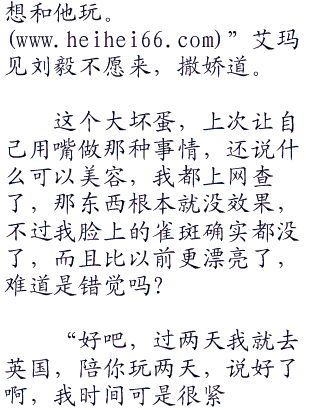 想和他玩。
(www.heihei66.com)”艾玛
见刘毅不愿来，撒娇道。
这个大坏蛋，上次让自
己用嘴做那种事情，还说什
么可以美容，我都上网查
了，那东西根本就没效果，
不过我脸上的雀斑确实都没
了，而且比以前更漂亮了，
难道是错觉吗？
“好吧，过两天我就去
英国，陪你玩两天，说好了
啊，我时间可是很紧